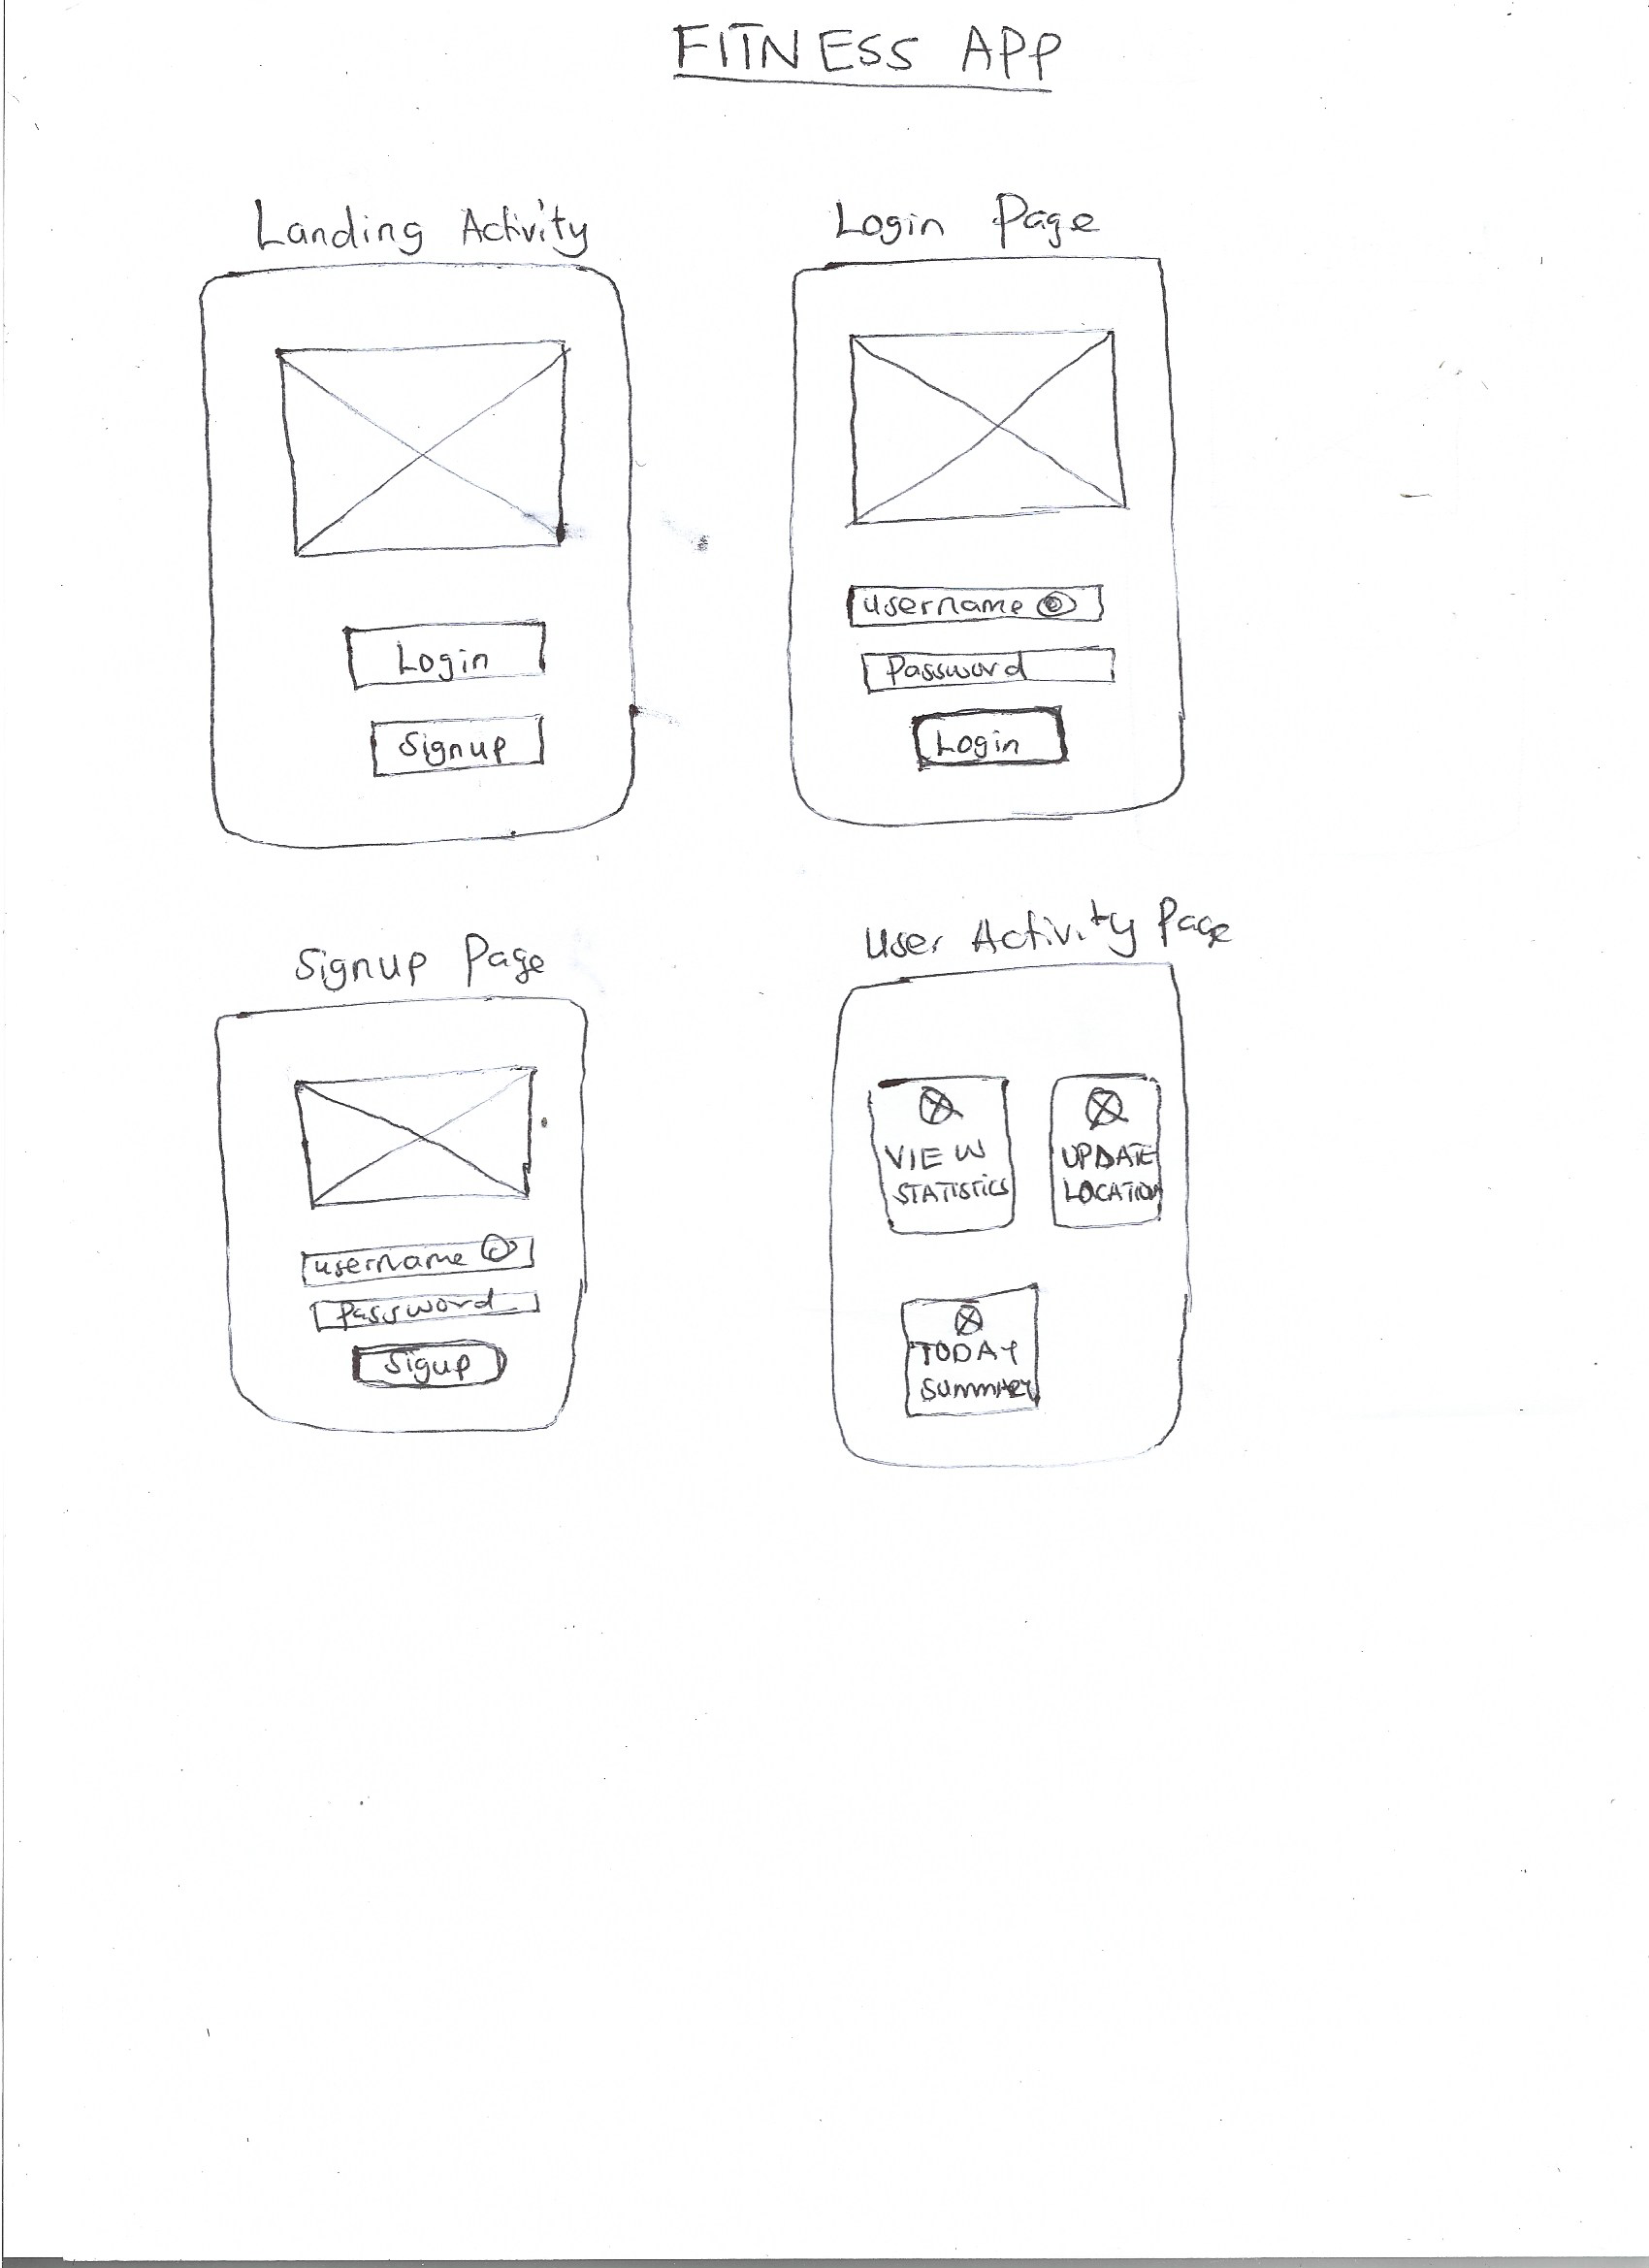 FITNESS APP
Landing Activity
Login
Signup
Login Page
username
Password
Login
Signup Page
username
Password
Sigup
User Activity Page
VIEW
STATISTICS
UPDATE
LOCATION
TODAY
SUMMARY